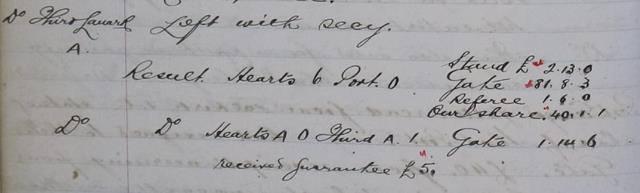 Do Third Lanark Left with secy.
A.
Stand £ 2.13.0
Result. Hearts 6 Port. 0 Gate 81.8.3
Referee 1.6.0
Our share. 40.1.1
Do Do Hearts A 0 Third A. 1. Gate 1.14.6
received guarantee £5.